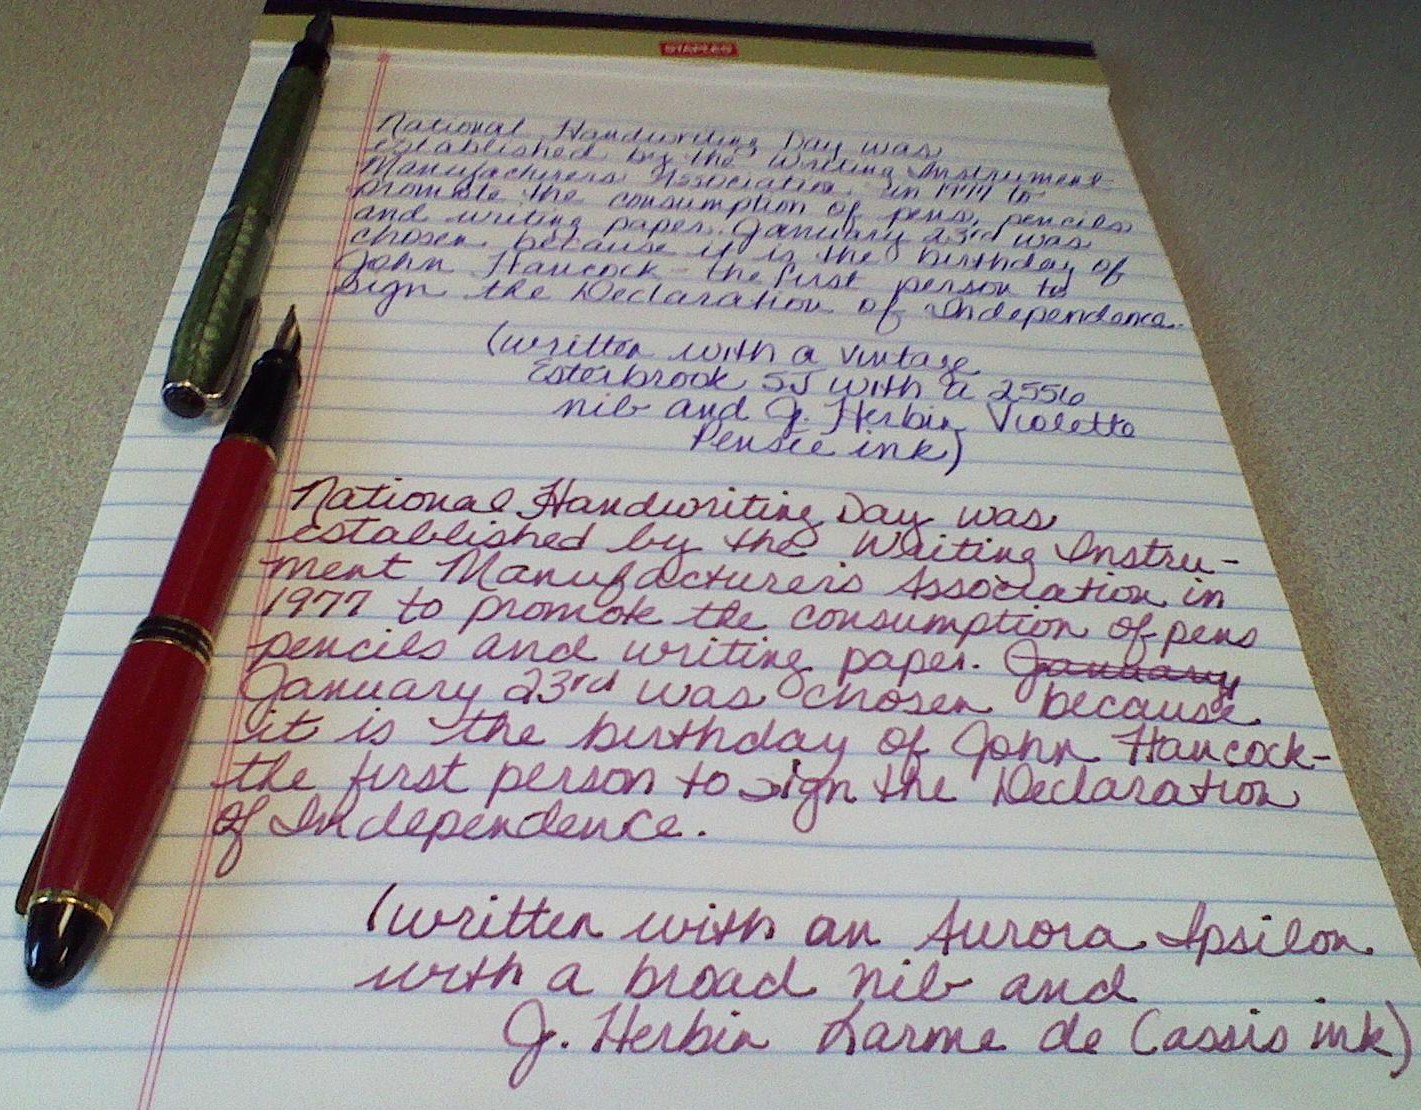 STAPLES
National Handwriting Day was
established by the Writing Instrument
Manufacturers Association in 1977 to
promote the consumption of pens, pencils
and writing paper. January 23rd was
chosen because it is the birthday of
John Hancock - the first person to
sign the Declaration of Independence.
(written with a vintage
Esterbrook SJ with a 2556
nib and J. Herbin Violette
Pensée ink)
National Handwriting Day was
established by the Writing Instru-
ment Manufacturers Association in
1977 to promote the consumption of pens
pencils and writing paper. January
January 23rd was chosen because
it is the birthday of John Hancock-
the first person to sign the Declaration
of Independence.
(written with an Aurora Ipsilon
with a broad nib and
J. Herbin Larme de Cassis ink)